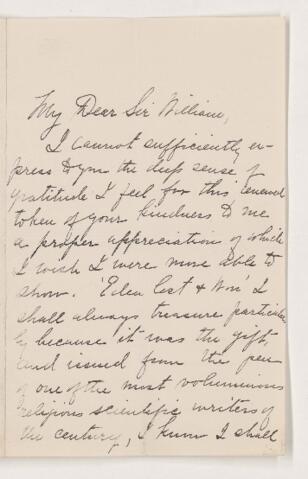 My Dear Sir William,
I cannot sufficiently ex-
press to you the deep sense of
gratitude I feel for this renewed
token of your kindness to me
a proper appreciation of which
I wish I were more able to
show. "Eden Lost & Won" I
shall always treasure particular
ly because it was the gift,
and issued from the pen
of one of the most voluminous
religious scientific writers of
the century, I know I shall